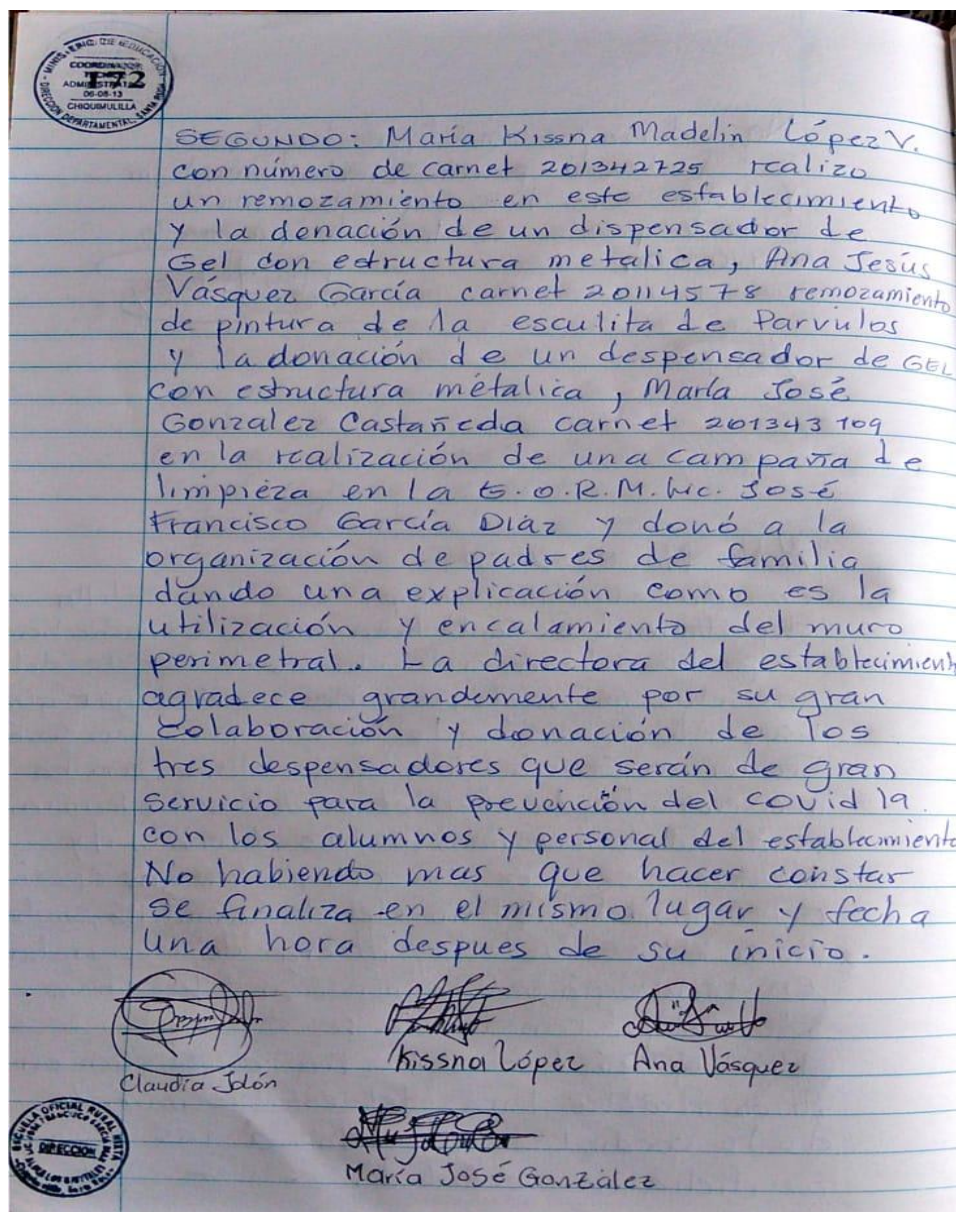 MINISTERIO DE EDUCACION
COORDINADOR
172
06-08-13
CHIQUIMULILLA
DIRECCION DEPARTAMENTAL, SANTA ROSA
SEGUNDO: María Kissna Madelin López V.
con número de carnet 201342725 realizo
un remozamiento en este establecimiento
y la denación de un dispensador de
Gel con estructura metalica, Ana Jesús
Vásquez García carnet 20114578 remozamiento
de pintura de la esculita de Parvulos
y la donación de un despensador de GEL
con estructura métalica, María José
Gonzalez Castañeda carnet 201343109
en la realización de una campaña de
limpieza en la E.O.R.M. Lic. José
Francisco García Díaz y donó a la
organización de padres de familia
dando una explicación como es la
utilización y encalamiento del muro
perimetral. La directora del establecimient
agradece grandemente por su gran
colaboración y donación de los
tres despensadores que serán de gran
servicio para la prevención del covid 19.
con los alumnos y personal del establecimiento
No habiendo mas que hacer constar
se finaliza en el mismo lugar y fecha
una hora despues de su inicio.
Kissna López Ana Vásquez
Claudia Jolón
ESCUELA OFICIAL RURAL MIXTA
DIRECCION
María José González